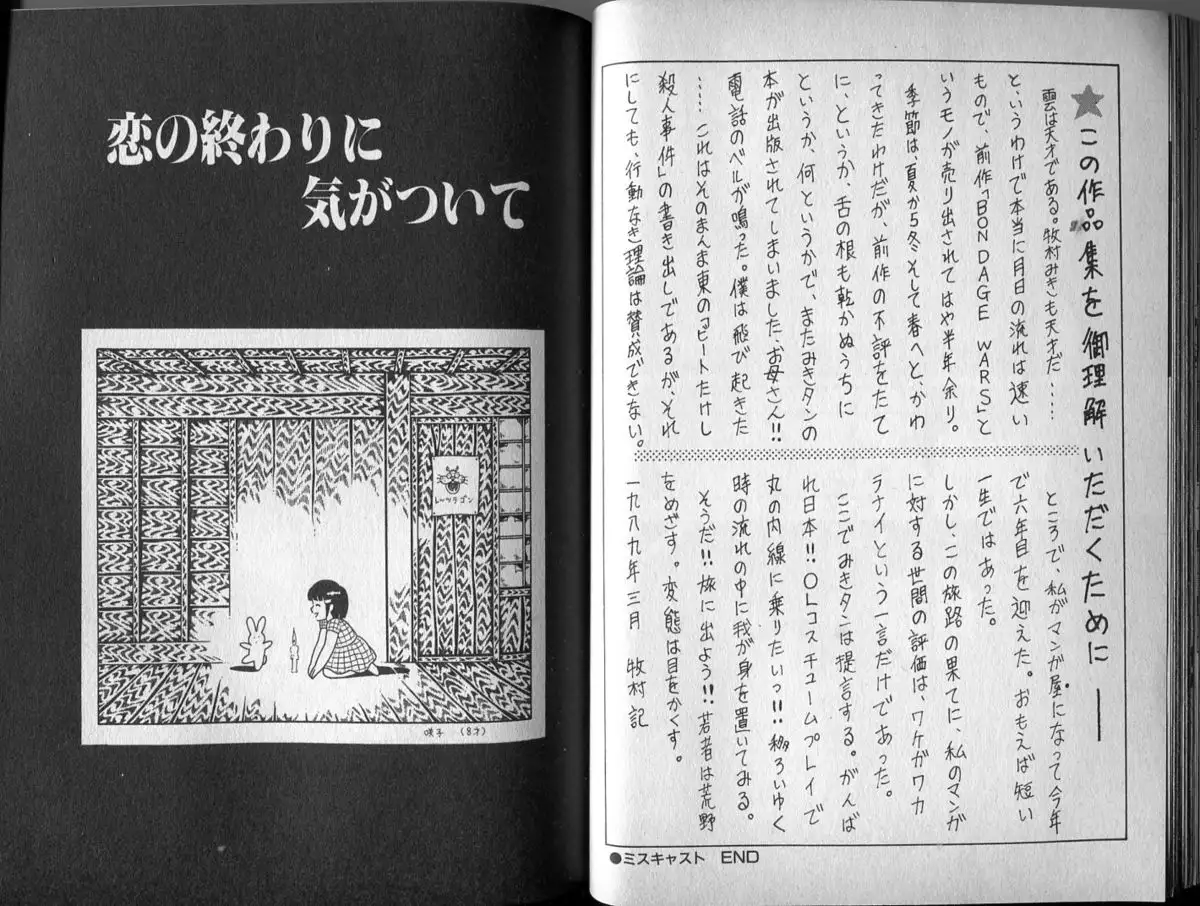 ★この作品集を御理解いただくために――
雲は天才である。牧村みきも天才だ……
というわけで本当に月日の流れは速い
もので、前作「BONDAGE WARS」と
いうモノが売り出されてはや半年余り。
季節は、夏から冬そして春へと、かわ
ってきたわけだが、前作の不評をたて
に、というか、舌の根も乾かぬうちに
というか、何というかで、またみきタンの
本が出版されてしまいました、お母さん!!
電話のベルが鳴った。僕は飛び起きた
……これはそのまんま東の『ビートたけし
殺人事件』の書き出しであるが、それ
にしても、行動なき理論は賛成できない。
ところで、私がマンガ屋になって今年
で六年目を迎えた。おもえば短い
一生ではあった。
しかし、この旅路の果てに、私のマンガ
に対する世間の評価は、ワケがワカ
ラナイという一言だけであった。
ここでみきタンは提言する。がんば
れ日本!!OLコスチュームプレイで
丸の内線に乗りたいっ!!移ろいゆく
時の流れの中に我が身を置いてみる。
そうだ!!旅に出よう!!若者は荒野
をめざす。変態は目をかくす。
一九八九年三月 牧村 記
●ミスキャスト END
恋の終わりに
気がついて
レッツラゴン
咲子 (8才)